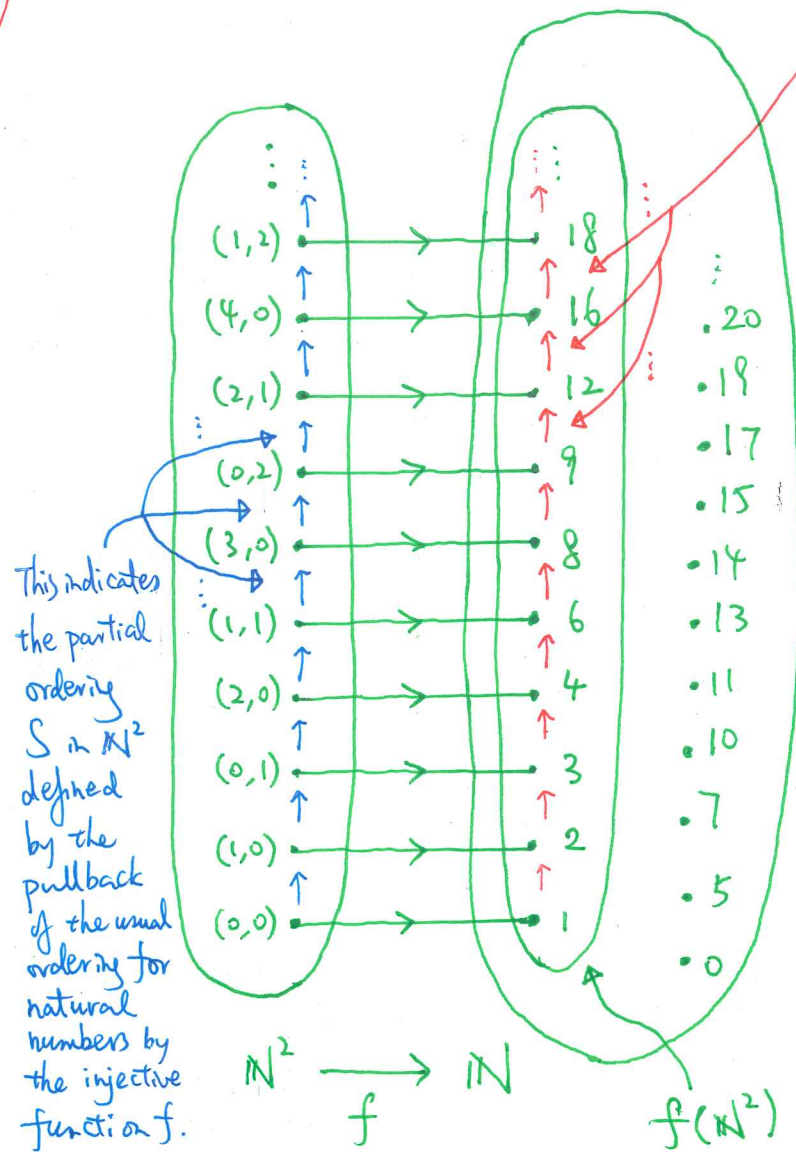 (1,2) 18
(4,0) 16
(2,1) 12
(0,2) 9
(3,0) 8
(1,1) 6
(2,0) 4
(0,1) 3
(1,0) 2
(0,0) 1
.20
.19
.17
.15
.14
.13
.11
.10
.7
.5
.0
This indicates
the partial
ordering
S in ℕ²
defined
by the
pullback
of the usual
ordering for
natural
numbers by
the injective
function f.
ℕ² ⟶ ℕ
f
f(ℕ²)